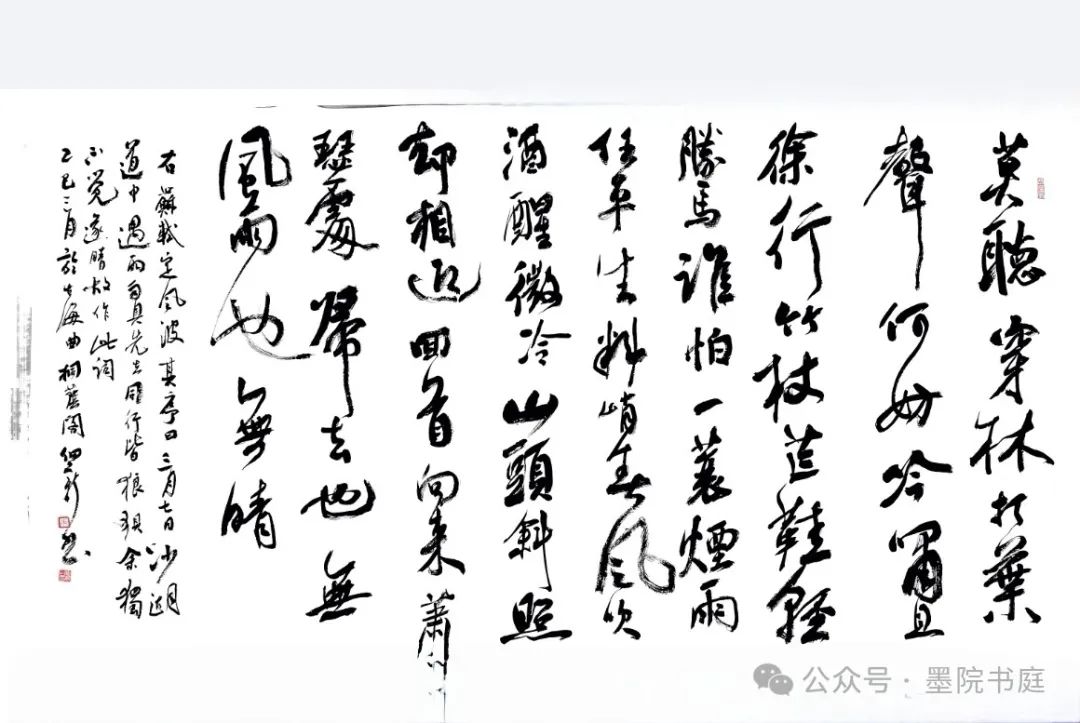 莫聽穿林打葉
聲何妨吟嘯且
徐行竹杖芒鞋輕
勝馬誰怕一蓑煙雨
任平生料峭春風吹
酒醒微冷山頭斜照
却相迎回首向來蕭
瑟處歸去也無
風雨也無晴
右蘇軾定風波其序曰三月七日沙湖
道中遇雨雨具先去同行皆狼狽余獨
不覺遂晴故作此詞
乙巳三月於曲桐蔭閣書
公众号·墨院书庭